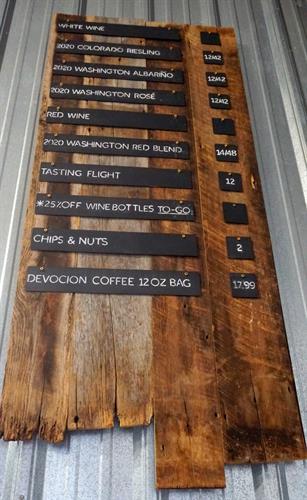 WHITE WINE
2020 COLORADO RIESLING 12/42
2020 WASHINGTON ALBARIÑO 12/42
2020 WASHINGTON ROSÉ 12/42
RED WINE
2020 WASHINGTON RED BLEND 14/48
TASTING FLIGHT 12
*25% OFF WINE BOTTLES TO-GO
CHIPS & NUTS 2
DEVOCION COFFEE 12OZ BAG 17.99